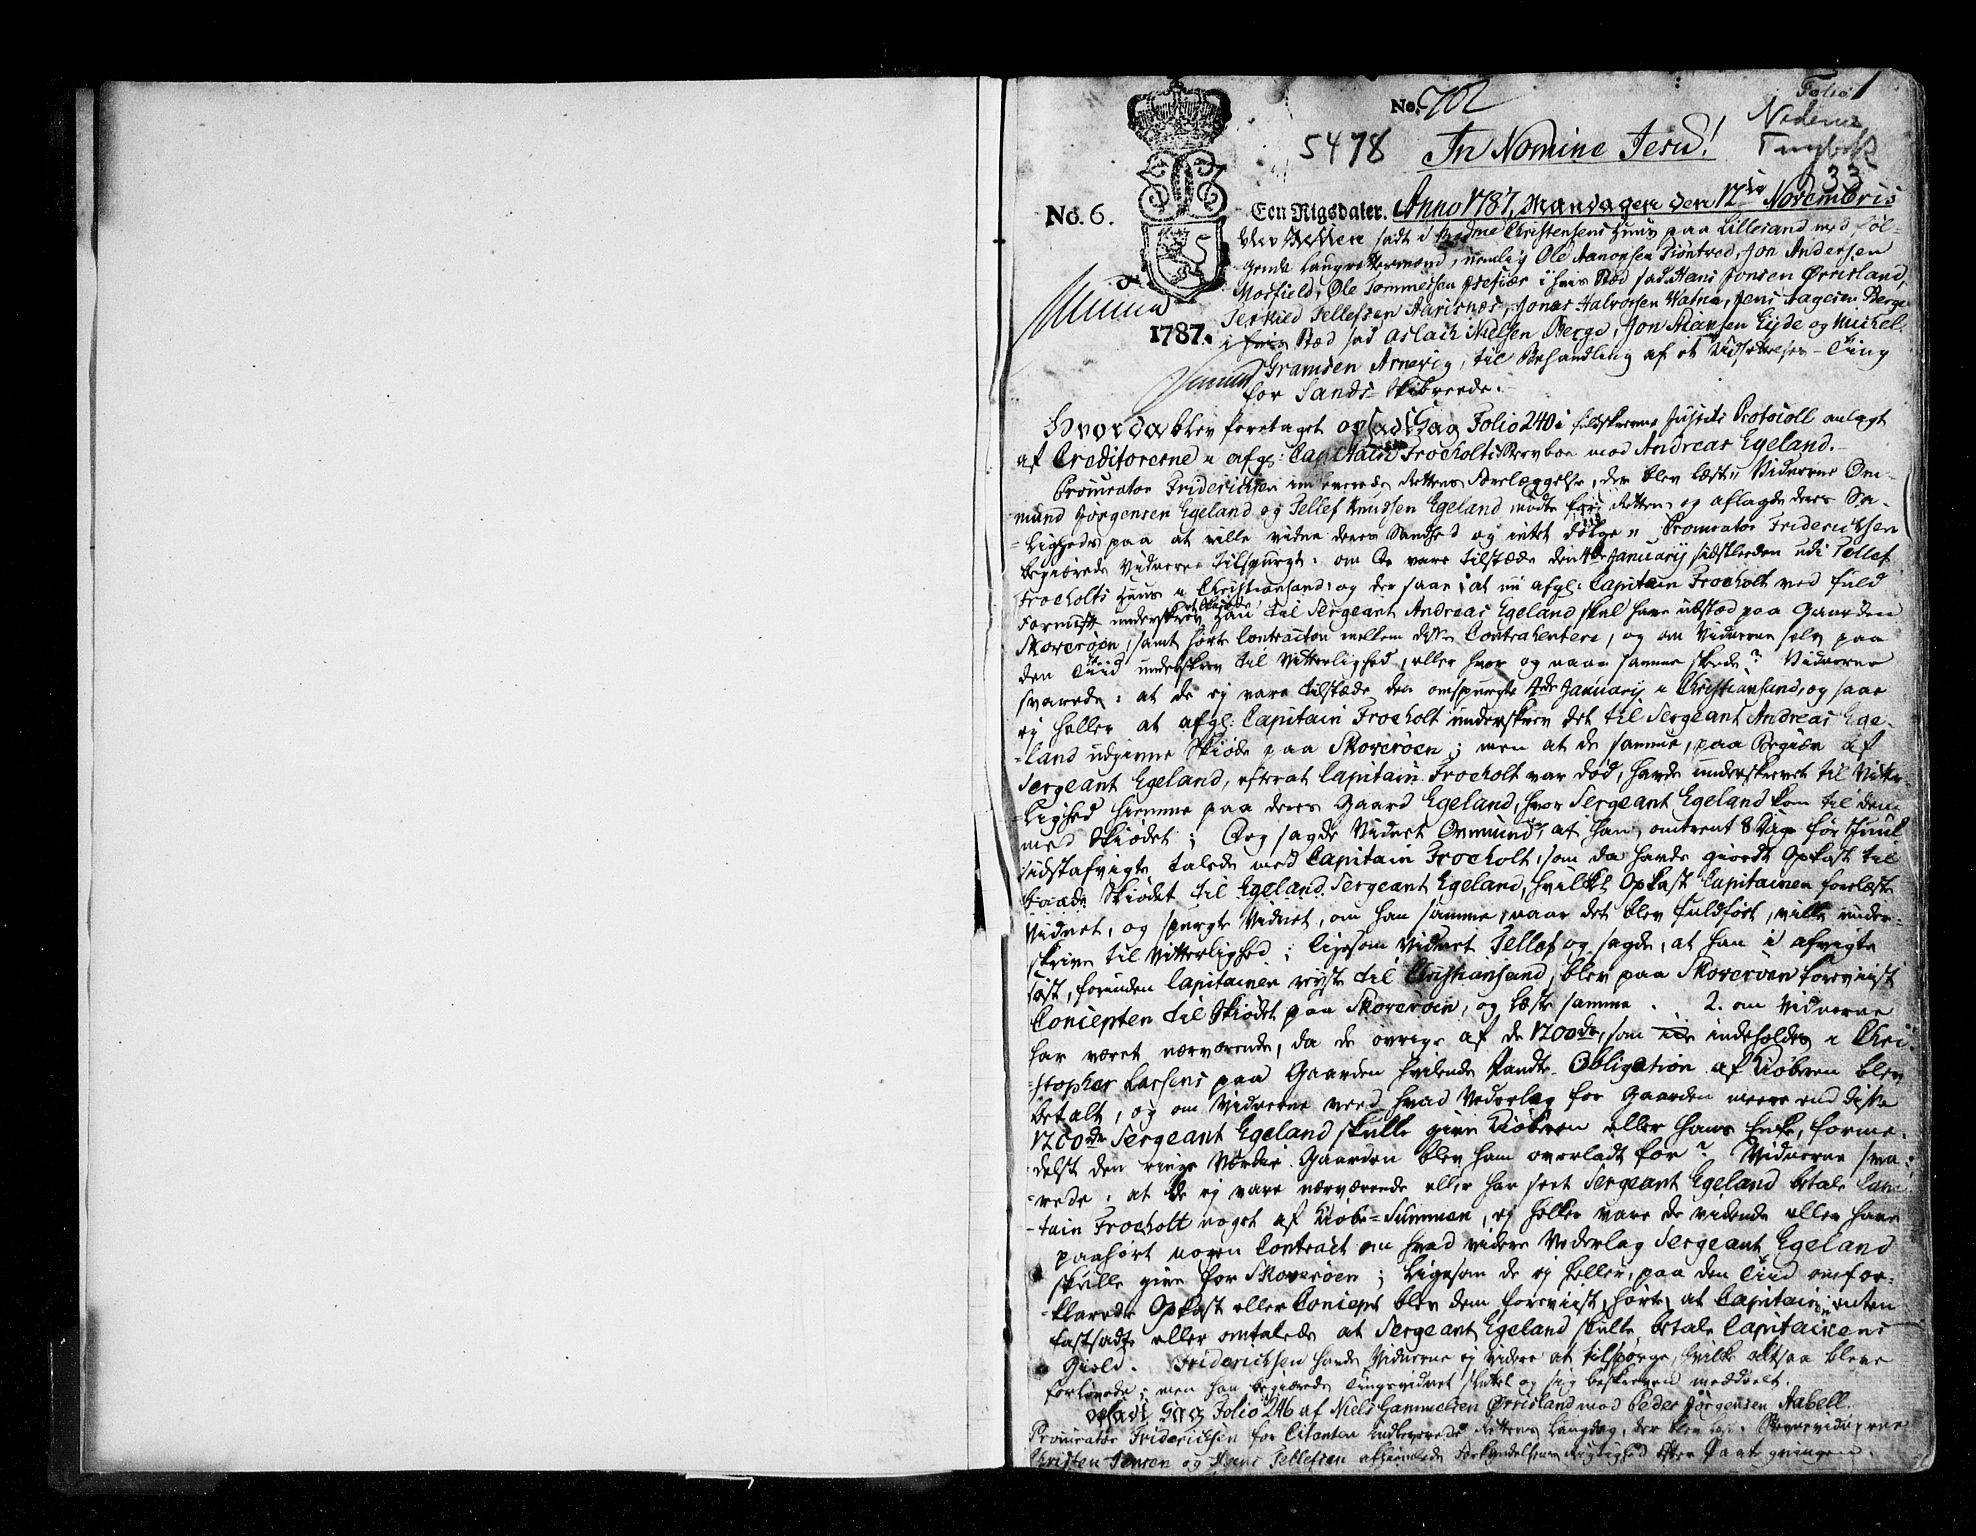 Folio 1
No. 702
Nedenes
5478 In Nomine Jesu! Tingbok
33
No. 6. Een Rigsdaler. Anno 1787, Mandagen den 12te Novembris
blev Retten sadt i Madme Christensens Huus paa Lillesand med føl-
gende Laugrettesmænd, nemlig Ole Aanonsen Tiøntved, Jon Andersen
Mosfield, Ole Tommesen i hvis Sted sad Hans Jonsen Ørrisland,
Terkild Tellefsen Aarisnæs, Jonas Halvorsen Vatne, Jens Aagesen Berge
1787. i hvis Sted sad Aslach Nielsen Berge, Jon Stiansen Eyde og Michel
Gramsen Arnevig, til Behandling af et Udsættelses-Ting
for Sands Skibrede.
Hvorda blev foretaget opsadt Sag Folio 240 i fuldskrevne Justits Protocoll anlagt
af Creditorerne i afg: Capitain Froeholts Stervboe mod Andreas Egeland.
Procurator Friderichsen indleverede Rettens Forelæggelse, der blev læst. Vidnerne Om-
mund Jørgensen Egeland og Tellef Knudsen Egeland mødte for Retten og aflagde deres Sa-
ligheds paa at ville vidne deres Sandhed og intet dølge. Procurator Friderichsen
begiærede Vidnerne tilspurgt: om De vare tilstæde den 4de Januarij sidstleden udi Tellef
Froeholts Huus i Christiansand, og der saae at nu afg: Capitain Froeholt med fuld
Fornuft underskrev det Skiøde han til Sergeant Andreas Egeland skal have udsted paa Gaarden
Skoverøen, samt hørte Contracten mellem disse Contrahentere, og om Vidnerne selv paa
den Tiid underskrev til Vitterlighed, eller hvor og naar samme skede? Vidnerne
svarede: at de ej vare tilstæde den omspurgte 4de Januarij i Christiansand, og saae
ej heller at afg: Capitain Froeholt underskrev det til Sergeant Andreas Ege-
land udgivne Skiøde paa Skoverøen; men at de samme, paa Begiær af
Sergeant Egeland, efterat Capitain Froeholt var død, havde underskrevet til Vitter-
lighed hiemme paa deres Gaard Egeland, hvor Sergeant Egeland kom til dem
med Skiødet; Og sagde Vidnet Ommund, at han omtrent 8 Dage før Juul
sidstafvigte talede med Capitain Froeholt, som da havde giordt Opkast til
baade Skiødet til Egeland Sergeant Egeland, hvilket Opkast Capitainen forelæste
Vidnet, og spurgte Vidnet, om han samme, naar det blev fuldført, ville under-
skrive til Vitterlighed; ligesom Vidnet Tellef og sagde, at han i afvigte
Høst, forinden Capitainen reyste til Christiansand, blev paa Skoverøen foreviist
Concepten til Skiødet paa Skoverøen, og læste samme. 2. om Vidnerne
har været nærværende, da de øvrige af de 1200rdr, som indeholdes i Chri-
stopher Larsens paa Gaarden hvilende Pandte-Obligation af Kiøberen blev
betalt, og om Vidnerne veed hvad Vederlag for Gaarden meere end disse
1200rdr Sergeant Egeland skulle give Kiøberen eller hans Enke, forme-
delst den ringe Værdie Gaarden blev ham overladt for? Vidnerne sva-
rede: at de ej vare nærværende eller har seet Sergeant Egeland betale Capi-
tain Froeholt noget af Kiøbe-Summen, ej heller vare de vidende eller have
paahørt nogen Contract om hvad videre Vederlag Sergeant Egeland
skulle give for Skoverøen; ligesom de ej heller, paa den Tiid omfor-
klarede Opkast eller Concept blev dem foreviist, hørte, at Capitain enten
fastsadte eller omtalede at Sergeant Egeland skulle betale Capitainens
Gield. Friderichsen havde Vidnerne ej videre at tilspørge, hvilke altsaa bleve
forløvede; men han begiærede Tingsvidnet sluttet og sig beskreven meddeelt.
opsadt Sag Folio 246 af Niels Gammelsen Ørrisland mod Peder Jørgensen Aabell.
Procurator Friderichsen for Citanten indleverede Rettens Laugdag, der blev læst. Stevnevidnerne
Christen Jensen og Hans Tellefsen afhiemlede Forkyndelsens Rigtighed efter Paategningen.